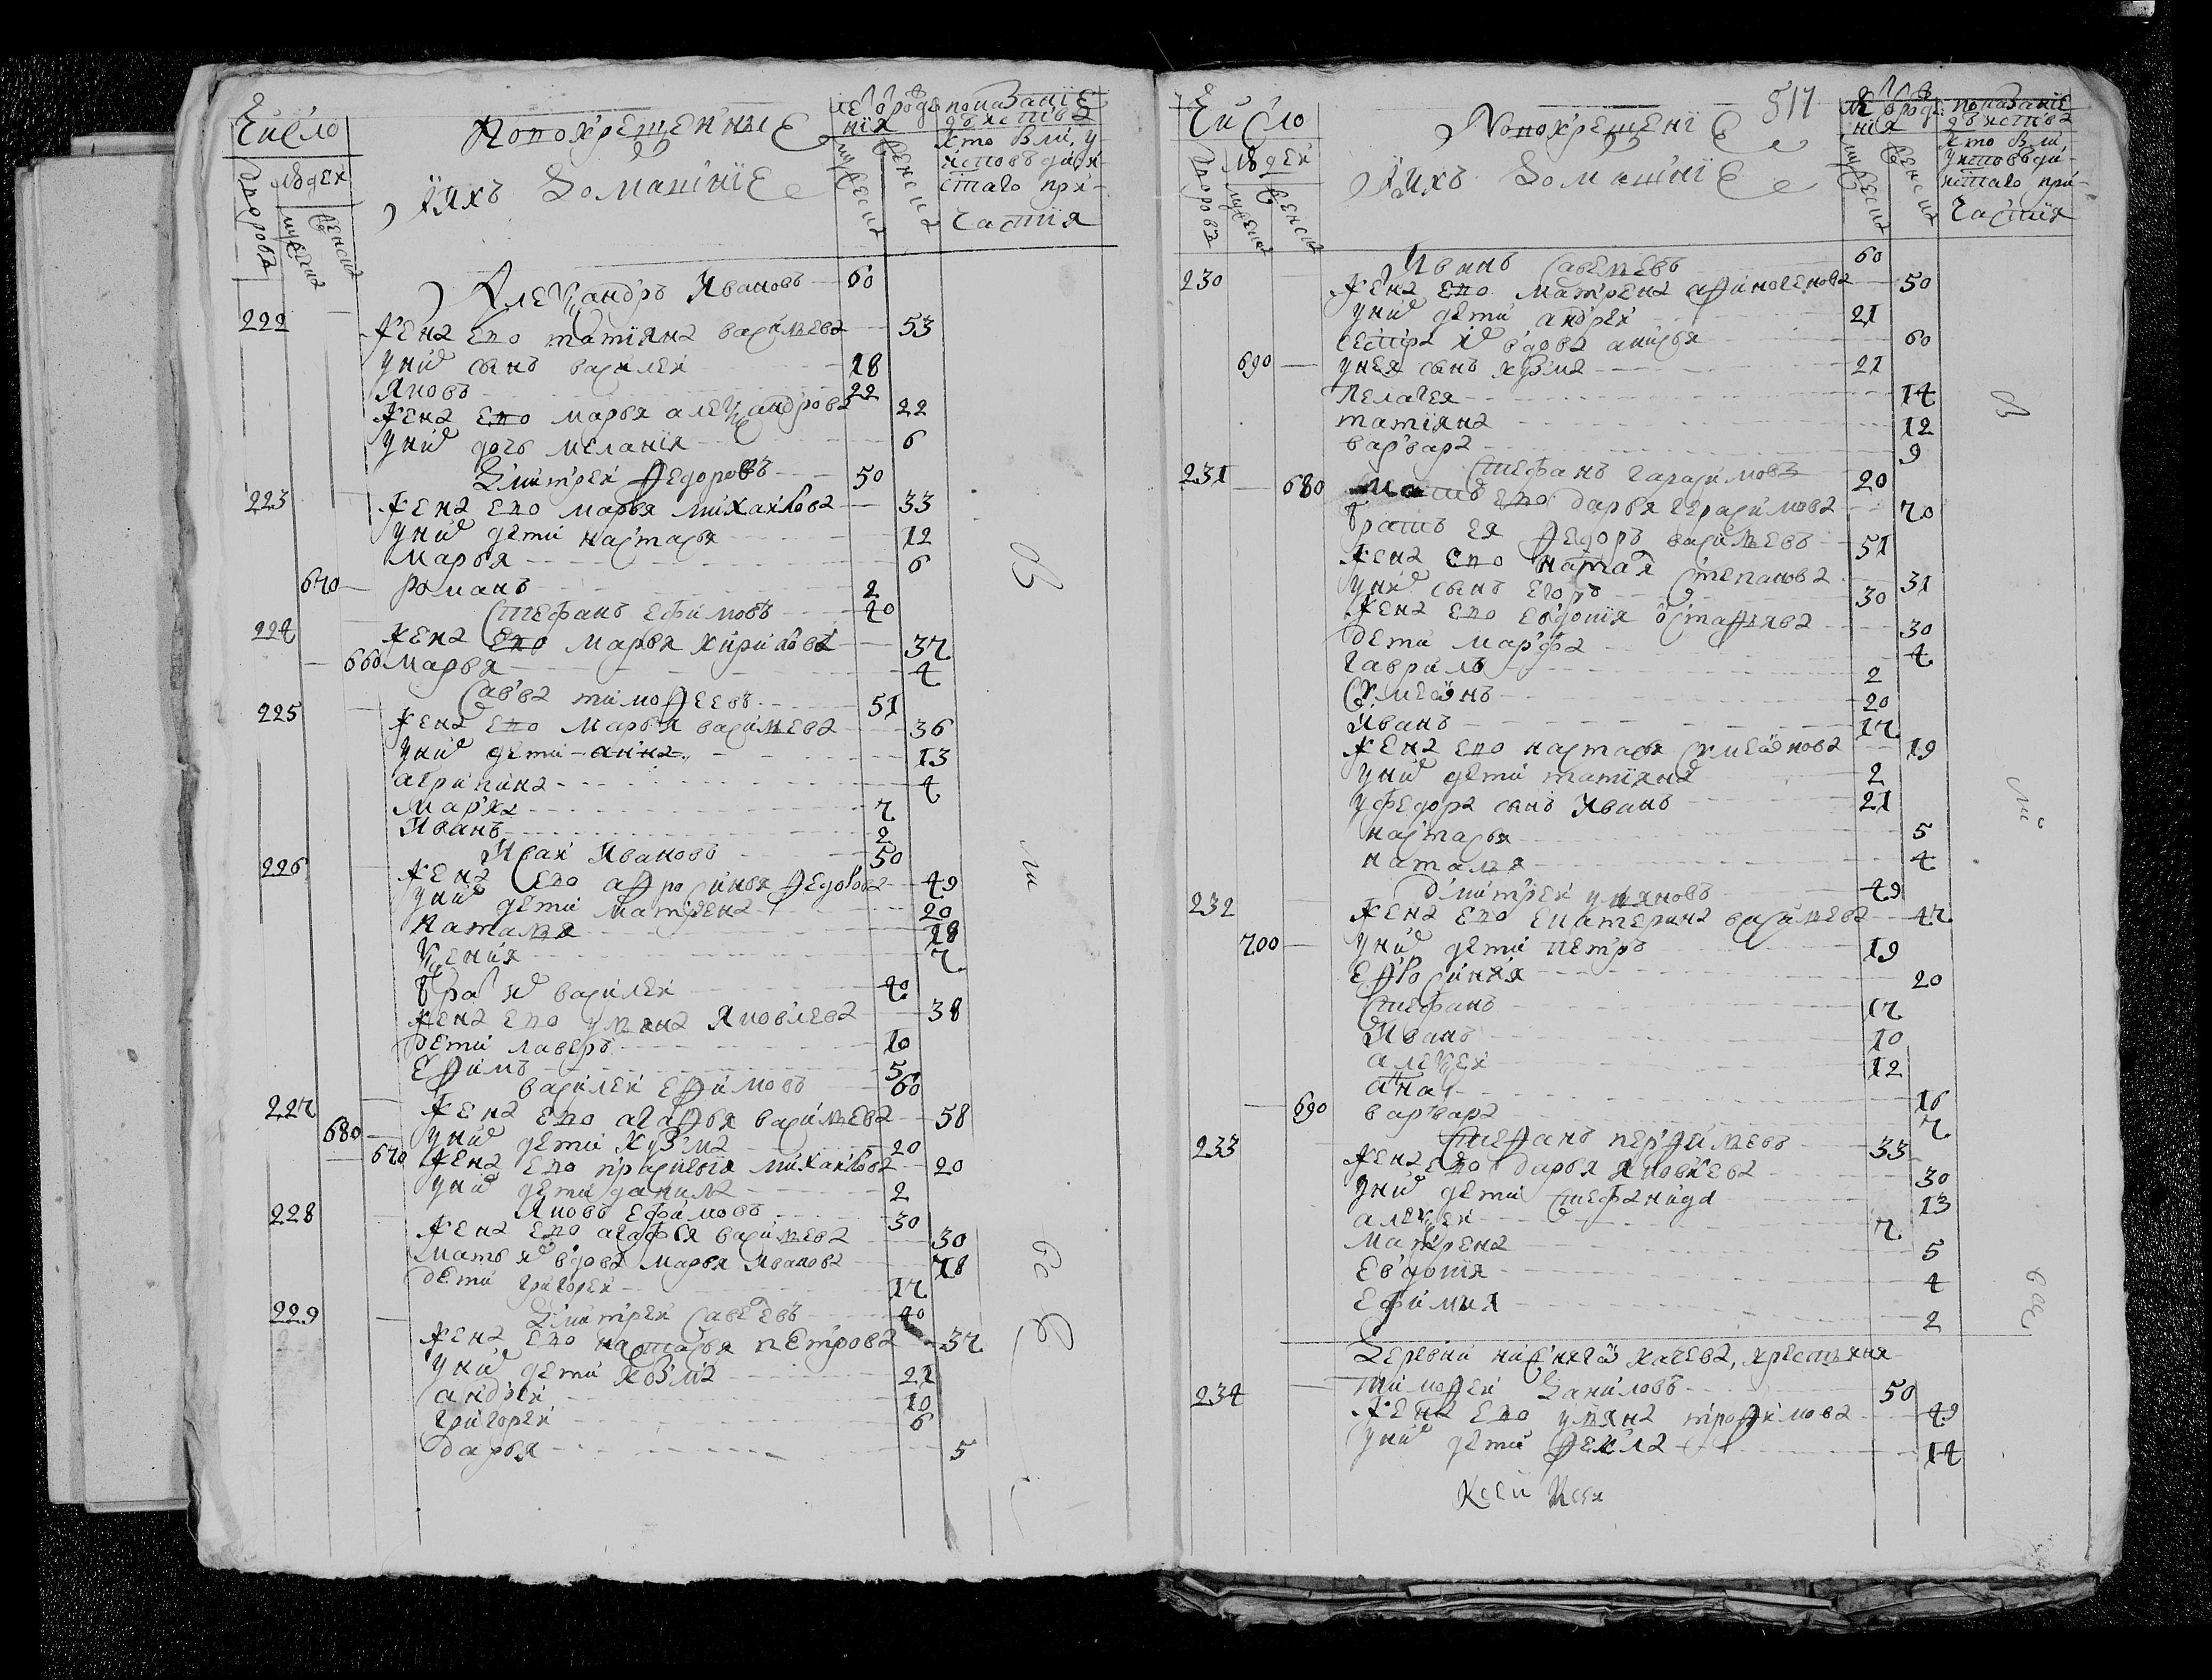 Число
дворовъ
людей
мужеска
женска
Новокрещенныє
и ихъ Домашнїе
лѣ рожде
нїя
мужеска
женска
показанїе
дѣйства
кто былъ у
исповѣди и
стаго при-
частия
222 Алеѯандръ Ивановъ 60
жена ево татїяна василъева 53
унихъ сынъ василей 28
Яковъ 22
жена ево марья алеѯандрова 22
унихъ дочь меланїя 6
223 Димитрей Федоровъ 50
жена ево марья михаилова 33
унихъ дети настасья 12
Марья 6
670 романъ 2
224 Стефанъ ефимовъ 40
жена ево марья кирилова 37
660 марья 4
225 Савва тимофеевъ 51
жена ево марья василъева 36
унихъ дети анна 13
агрипина 4
Марка 7
Иванъ 2
226 Иванъ Ивановъ 50
жена ево афросинья Федорова 49
унихъ дети матрена 20
Наталья 18
Ѯения 7
Братъ ихъ василей 40
жена ево ульяна Яковлева 38
дети лаверъ 10
Ефимъ 5
227 василей Ефимовъ 60
жена ево агафья василъева 58
680 унихъ дети Кузма 20
670 жена ево прасковїя михаилова 20
унихъ дети данила 2
228 Яковъ Ефимовъ 30
жена ево агафья василъева 30
мать ихъ вдова марья Иванова 78
дети григорей 17
229 Димитрей Савелевъ 40
жена ево настасья петрова 37
унихъ дети Козма 21
андрей 10
григорей 6
дарья 5
бы
ли
все
Число
дворовъ
людей
мужеска
женска
Новокрещенїе
517
и ихъ Домашнїе
лѣ рожде
нїя
мужеска
женска
показанїе
дѣйства
кто былъ
у исповѣди
истаго при-
частїя
230 Иванъ Савелъевъ 60
жена ево матрена афиногенова 50
унихъ дети андрей 21
сестра ихъ вдова анисья 60
690 унея сынъ кузма 21
Пелагея 14
татїяна 12
варвара 9
231 Стефанъ герасимовъ 20
680 мать ево дарья герасимова 70
братъ ея Федоръ василъевъ 51
жена ево Степанова 31
унихъ сынъ егоръ 30
жена ево евдокїя 30
дети марфа 4
гаврило 2
Сѵмеонъ 20
Иванъ 17
жена ево настасья Сѵмеонова 19
унихъ дети татїяна 2
уфедора сынъ Иванъ 21
настасья 5
наталья 4
232 Димитрей ульяновъ 49
жена ево екатерина василъева 47
700 унихъ дети петръ 19
Ефросиния 20
Стефанъ 17
Иванъ 10
алеѯей 12
анна 16
690 варвара 7
233 Стефанъ перфильевъ 33
жена ево дарья Яковлева 30
унихъ дети стефанида 13
алеѯей 7
Матрена 5
Евдокїя 4
ефимия 2
Деревни крестьяня
234 тимофей Даниловъ 50
жена ево ульяна трофимова 49
унихъ дети Фекла 14
бы
ли
все